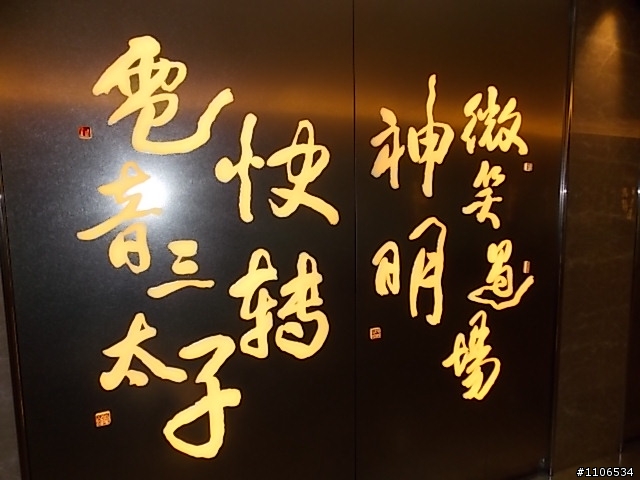 微笑過場
神明
快轉
電音三太子
#1106534